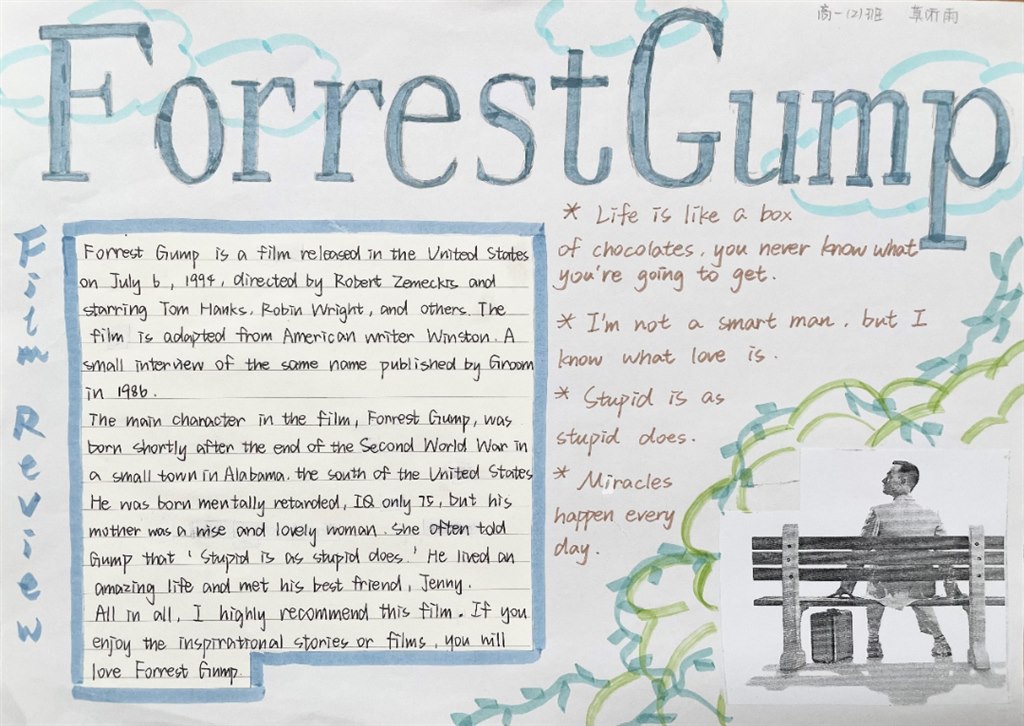 高一(2)班
Forrest Gump
Film Review
Forrest Gump is a film released in the United States
on July 6, 1994, directed by Robert Zemeckis and
starring Tom Hanks, Robin Wright, and others. The
film is adapted from American writer Winston. A
small interview of the same name published by Groom
in 1986.
The main character in the film, Forrest Gump, was
born shortly after the end of the Second World War in
a small town in Alabama, the south of the United States
He was born mentally retarded, IQ only 75, but his
mother was a wise and lovely woman. She often told
Gump that 'Stupid is as stupid does.' He lived an
amazing life and met his best friend, Jenny.
All in all, I highly recommend this film. If you
enjoy the inspirational stories or films, you will
love Forrest Gump.
* Life is like a box
of chocolates, you never know what
you're going to get.
* I'm not a smart man, but I
know what love is.
* Stupid is as
stupid does.
* Miracles
happen every
day.